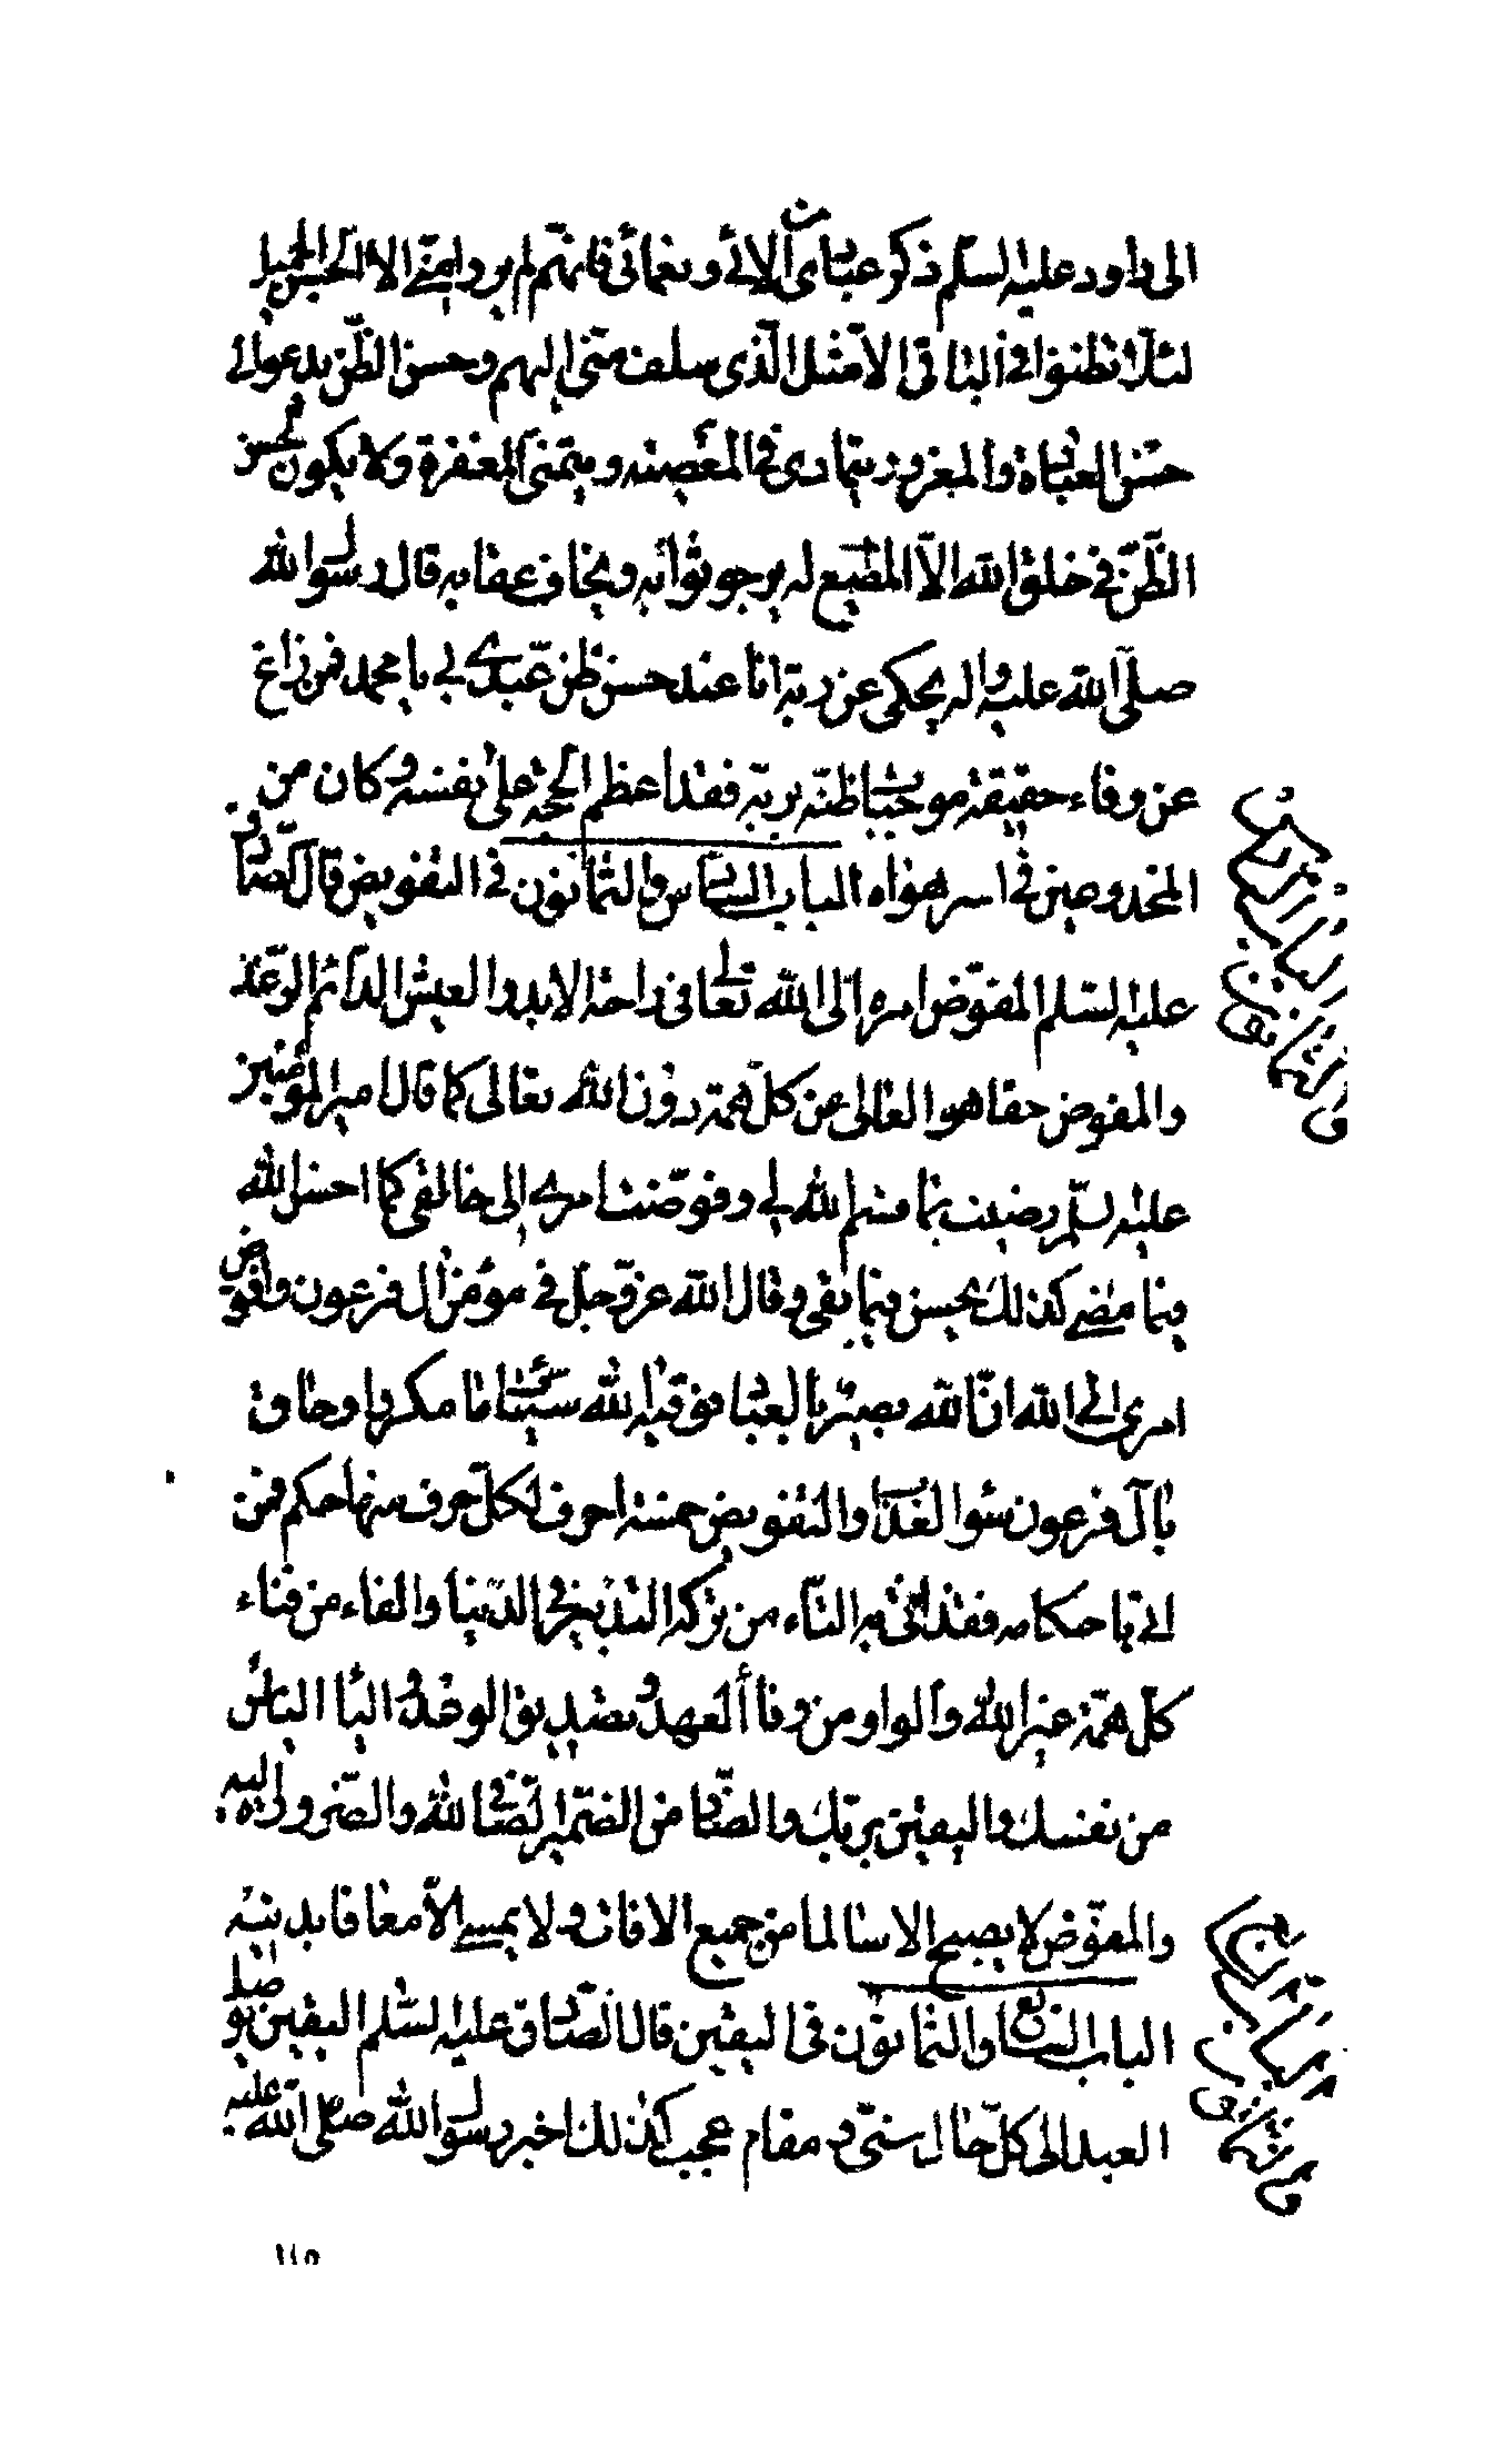 الى داود عليه السلم ذكر عبادى من الائى و نعمائى فانهم لم يروا منى الا الحسن الجميل
لئلا تظنوا فى الباقى الا مثل الذى سلف منى اليهم و حسن الظن يدعوا الى
حسن العبادة و المغرور يتمادى فى المعصية و يتمنى المغفرة ولا يكون لحسن
الظن فى خلق الله الا المطيع له يرجو ثوابه و يخاف عقابه قال رسول الله
صلى الله عليه و اله يحكى عن ربه انا عند حسن ظن عبدى بى يا محمد فمن زاغ
عن وفاء حقيقة موجبات ظنه بربه فقد اعظم الحجة على نفسه و كان من
المخدوعين فى اسر هواه الباب السادس والثمانون فى التفويض قال الصادق
عليه السلم المفوض امره الى الله تعالى فى راحة الابد والعيش الدائم الرغد
والمفوض حقا هو العالى عن كل همة دون الله تعالى كما قال امير المؤمنين
عليه السلم رضيت بما قسم الله لى و فوضت امرى الى خالقى كما احسن الله
فيما مضى كذلك يحسن فيما بقى و قال الله عز و جل فى مؤمن ال فرعون و افوض
امرى الى الله ان الله بصير بالعباد فوقيه الله سيئات ما مكروا و حاق
بآل فرعون سوء العذاب والتفويض خمسة احرف لكل حرف منها حكم فمن
اتى باحكامه فقد اتى به التاء من تركه التدبير فى الدنيا والفاء من فناء
كل همة غير الله والواو من وفاء العهد و تصديق الوعد و الياء الياس
من نفسك واليقين بربك والضاد من الضمير الصافى لله والضرورة اليه
والمفوض لا يصبح الا سالما من جميع الافات ولا يمسى الا معافا بدينه
الباب السابع والثمانون فى اليقين قال الصادق عليه السلم اليقين يوصل
العبد الى كل حال سنى و مقام عجيب كذلك اخبر رسول الله صلى الله عليه
١١٥